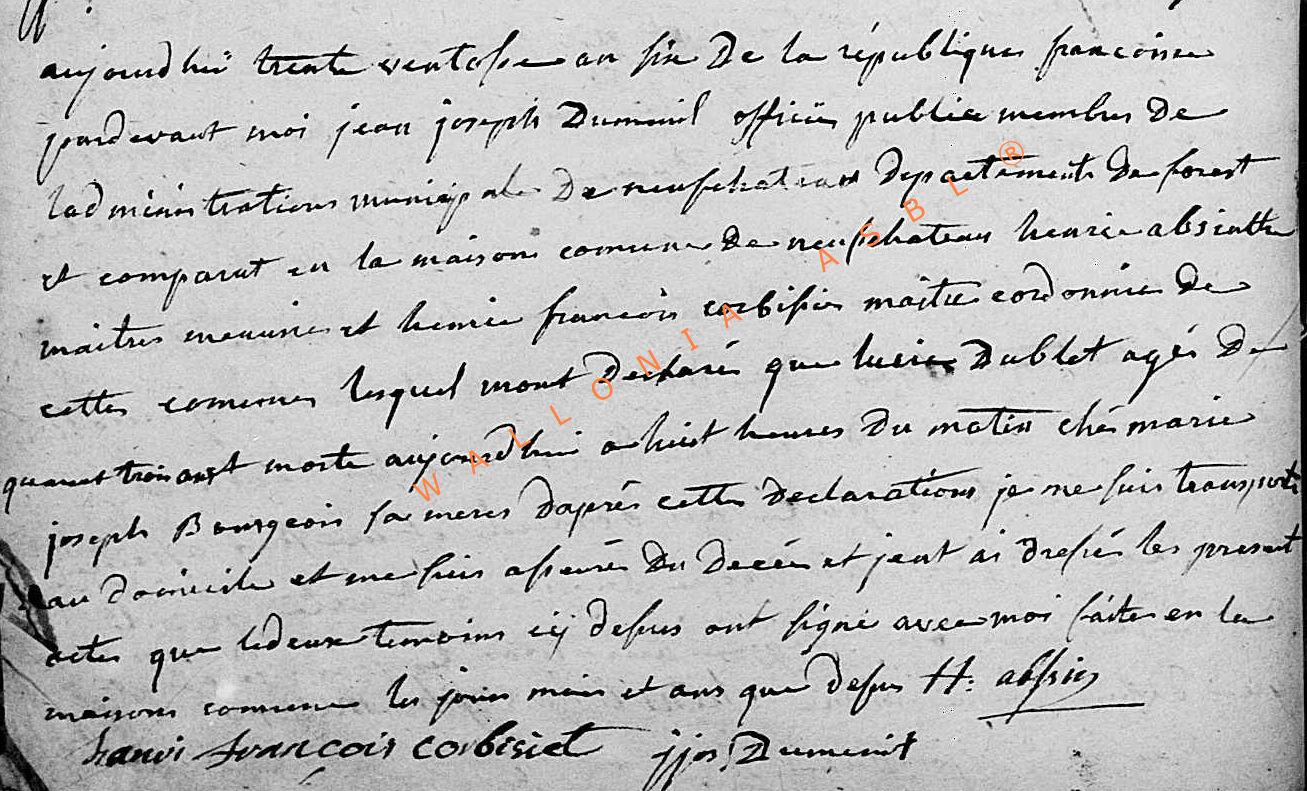 aujourdhui trente ventose an six De la république francoise
pardevant moi jean joseph Dumenil officier publice membres De
ladministrations municipale De neufchateau Departements De forest
et comparut en la maison comune De neufchateau henrie absinthe
maitres et henrie francois corbisier maitre cordonnier De
cettes comunes lesquel mont Declarés que lucie Dublet agés De
quarant trois ans et morte aujourdhui a huit heures Du matin ché marie
joseph Bourgeois sa meres Daprés cettes Declarations je me suis transporté
au Domicile et me suis asseurés Du Decés et jent ai Dressés les present
actes que le deux temoins icy Dessus ont signé avec moi faite en la
maisons comune les jours mois et ans que Dessus H: absin
hanri francois corbisiet jjos Dumenil
WALLONIA ASBL ®